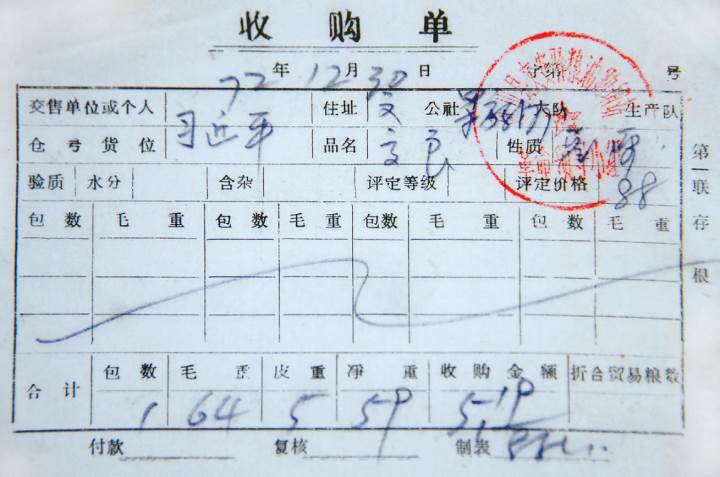 收购单
72年12月30日 字第 号
交售单位或个人 习近平 住址 文 公社 大队 生产队
仓号货位 品名 性质
验质 水分 含杂 评定等级 评定价格 88
包数 毛重 包数 毛重 包数 毛重 包数 毛重
合计 包数 毛重 皮重 净重 收购金额 折合贸易粮数
1 64 5 59 5,19
付款 复核 制表
第一联存根